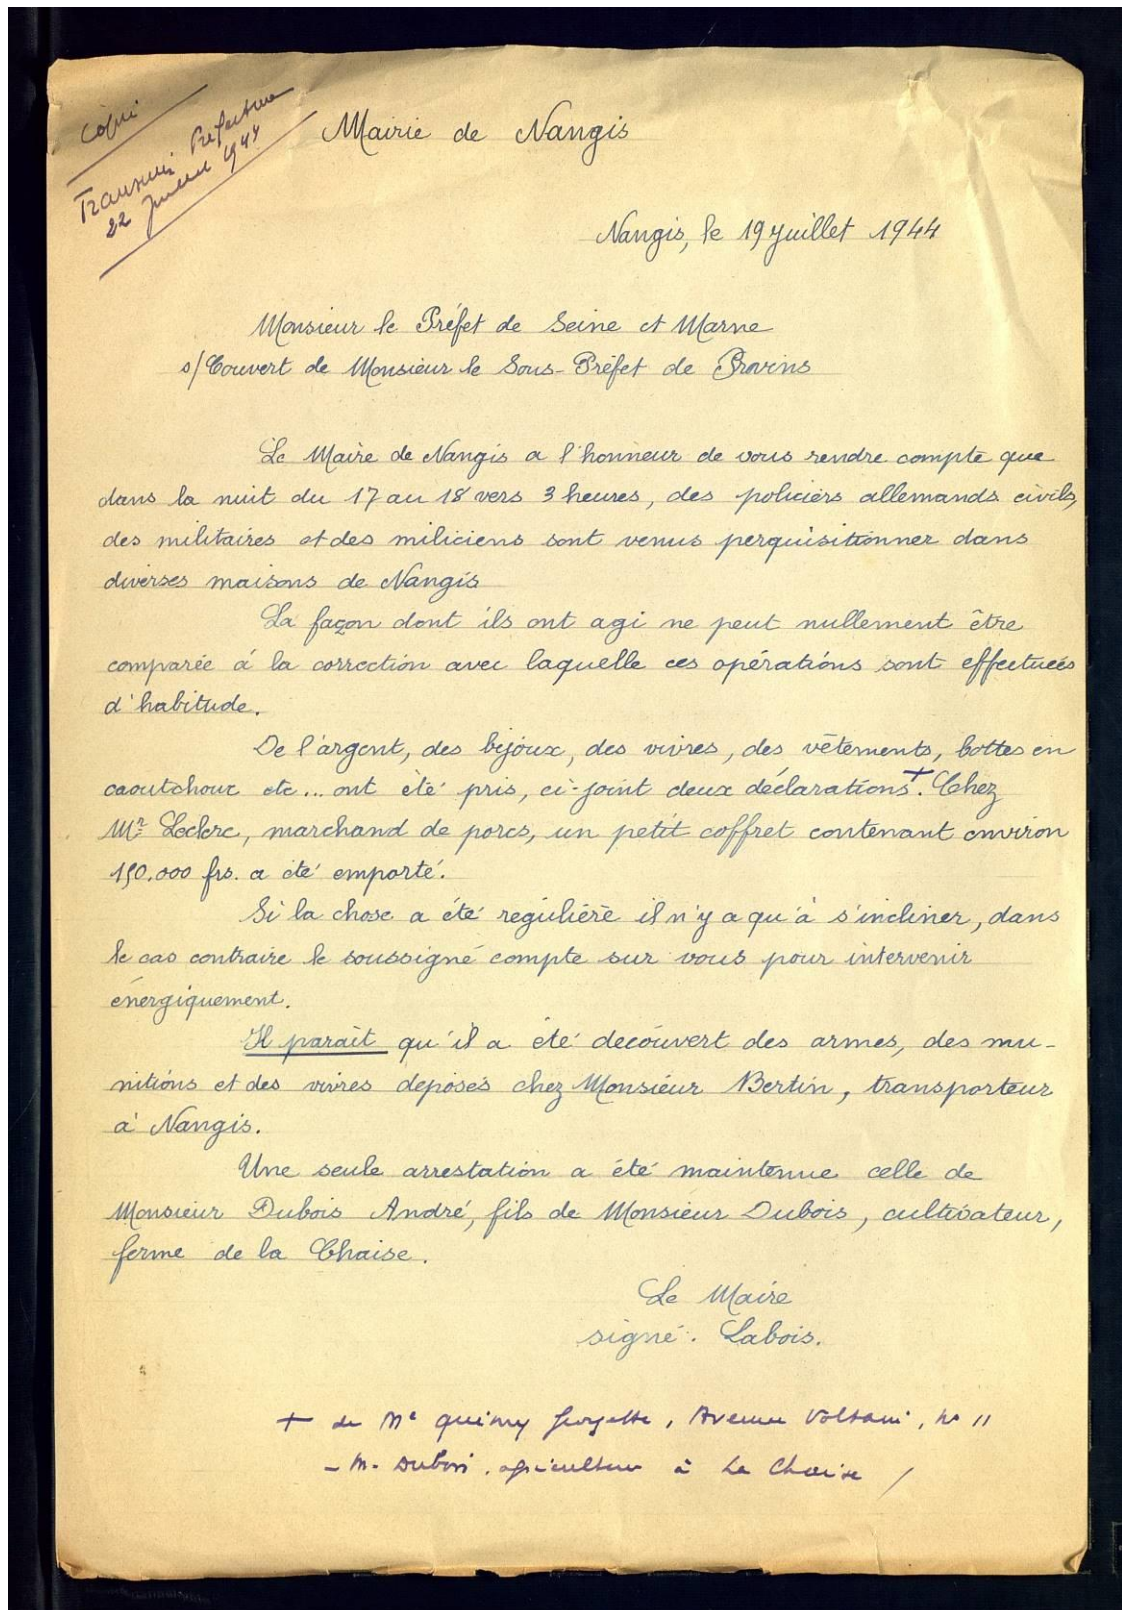 Copie
Transmis Préfecture
22 Juillet 1944
Mairie de Nangis
Nangis, le 19 Juillet 1944
Monsieur le Préfet de Seine et Marne
s/Couvert de Monsieur le Sous-Préfet de Provins
Le Maire de Nangis a l'honneur de vous rendre compte que
dans la nuit du 17 au 18 vers 3 heures, des policiers allemands civils,
des militaires et des miliciens sont venus perquisitionner dans
diverses maisons de Nangis
La façon dont ils ont agi ne peut nullement être
comparée à la correction avec laquelle ces opérations sont effectuées
d'habitude.
De l'argent, des bijoux, des vivres, des vêtements, bottes en
caoutchouc etc... ont été pris, ci-joint deux déclarations+. Chez
Mr Leclerc, marchand de porcs, un petit coffret contenant environ
150.000 frs. a été emporté.
Si la chose a été régulière il n'y a qu'à s'incliner, dans
le cas contraire le soussigné compte sur vous pour intervenir
énergiquement.
Il parait qu'il a été découvert des armes, des mu-
nitions et des vivres déposés chez Monsieur Bertin, transporteur
à Nangis.
Une seule arrestation a été maintenue celle de
Monsieur Dubois André, fils de Monsieur Dubois, cultivateur,
ferme de la Chaise.
Le Maire
signé. Labois.
+ de Me Georgette, Avenue Voltaire, no 11
- M. Dubois, agriculteur à La Chaise /